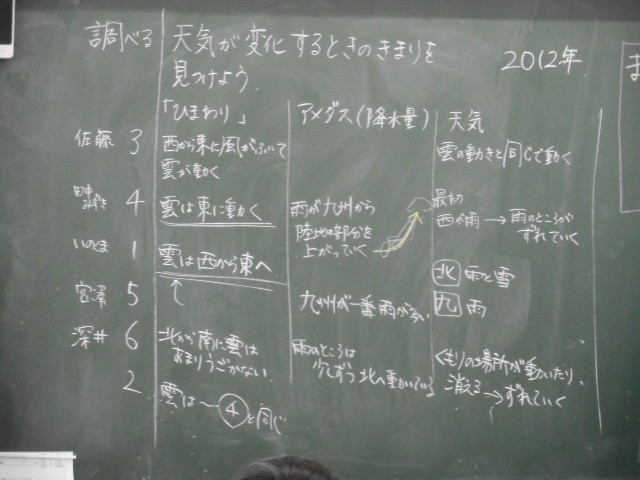 調べる 天気が変化するときのきまりを
見つけよう.
2012年
ま
「ひまわり」 アメダス(降水量) 天気
佐藤 3 西から東に風がふいて
雲が動く
雲の動きと同じで動く
4 雲は東に動く
雨が九州から
陸地の部分を
上がっていく
最初
西が雨→雨のところが
ずれていく
いのは 1 雲は西から東へ
北 雨と雪
宮澤 5
九州が一番雨が多い
九 雨
深井 6 北から南に雲は
あまりうごかない
雨のところは
少しずつ北へ動いている
くもりの場所が動いたり、
消える→ずれていく
2 雲は〜④と同じ